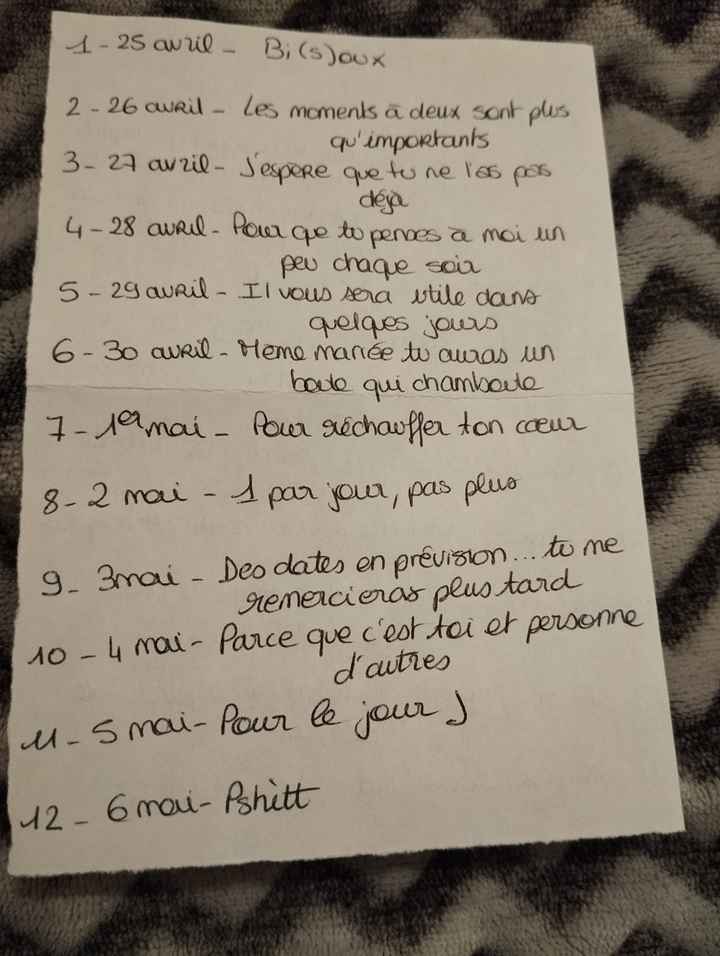 1 - 25 avril - Bi(s)oux
2 - 26 avril - Les moments à deux sont plus
qu'importants
3 - 27 avril - J'espère que tu ne l'as pas
déjà
4 - 28 avril - Pour que tu penses à moi un
peu chaque soir
5 - 29 avril - Il vous sera utile dans
quelques jours
6 - 30 avril - Meme mariée tu auras un
boule qui chamboule
7 - 1er mai - Pour réchauffer ton coeur
8 - 2 mai - 1 par jour, pas plus
9 - 3 mai - Des dates en prévision... tu me
remercieras plus tard
10 - 4 mai - Parce que c'est toi et personne
d'autres
11 - 5 mai - Pour le jour J
12 - 6 mai - Pshitt